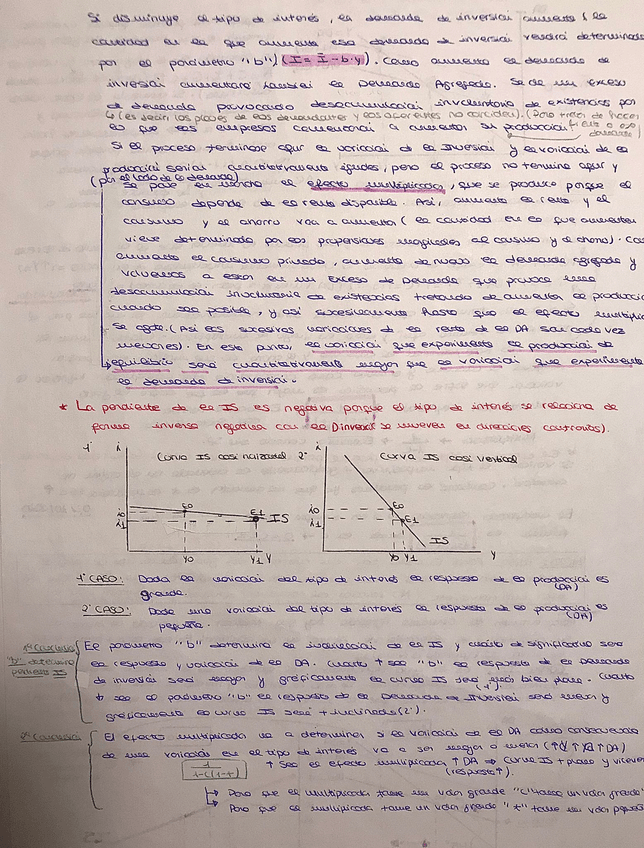 Si disminuye el tipo de interés, la demanda de inversión aumenta (la
cantidad en la que aumenta esa demanda de inversión vendrá determinada
por el parámetro "b") (I = Ī - b·y). Como aumenta la demanda de
inversión aumentará también la Demanda Agregada. Se da un exceso
de demanda provocado desacumulación involuntaria de existencias por
(es decir los planes de los demandantes y los oferentes no coinciden). (Para tratar de hacer
lo que las empresas comenzarán a aumentar su producción frente a ese
demanda)
Si el proceso terminase aquí la variación de la Inversión y la variación de la
producción serían cuantitativamente iguales, pero el proceso no termina aquí y
(por el lado de la demanda)
se pone en marcha el efecto multiplicador, que se produce porque el
consumo depende de la renta disponible. Así, aumenta la renta y el
consumo y el ahorro van a aumentar (la cantidad en la que aumentan
viene determinada por las propensiones marginales al consumo y al ahorro).
aumenta el consumo privado, aumenta de nuevo la demanda agregada y
volvemos a estar en un exceso de Demanda que provoca una
desacumulación involuntaria de existencias tratando de aumentar la
cuando sea posible, y así sucesivamente hasta que el efecto
se agote. (Así las sucesivas variaciones de la renta de la DA son cada vez
menores). En este punto, la variación que experimenta la producción de
equilibrio será cuantitativamente mayor que la variación que experimenta
la demanda de inversión.
* La pendiente de la IS es negativa porque el tipo de interés se relaciona de
forma inversa negativa con la D inversión (se mueven en direcciones contrarias).
1º i Curva IS casi horizontal 2º i Curva IS casi vertical
i0 E0 E1 IS i0 E0
i1 i1 E1
IS
Y0 Y1 Y Y0 Y1 Y
1º CASO: Dada la variación del tipo de interés la respuesta de la producción es
(DA)
grande.
2º CASO: Dada una variación del tipo de interés la respuesta de la producción es
(DA)
pequeña.
1ª Conclusión El parámetro "b" determina la inclinación de la IS y cuánto de significativa será
"b" determina la respuesta y variación de la DA. Cuanto + sea "b" la respuesta de la Demanda
pendiente IS de inversión será mayor y gráficamente la curva IS será más bien plana. Cuanto
(1º)
+ sea el parámetro "b" la respuesta de la Demanda de Inversión será menor y
gráficamente la curva IS será + inclinada (2º).
2ª Conclusión El efecto multiplicador va a determinar si la variación de la DA como consecuencia
de una variación en el tipo de interés va a ser mayor o menor
1/1-c(1-t) ↑ Sea el efecto multiplicador ↑ DA ⇒ Curva IS + plana y viceversa
(respuesta ↑).
Para que el multiplicador tome un valor grande "c" tome un valor grande
Para que el multiplicador tome un valor grande "t" tome un valor